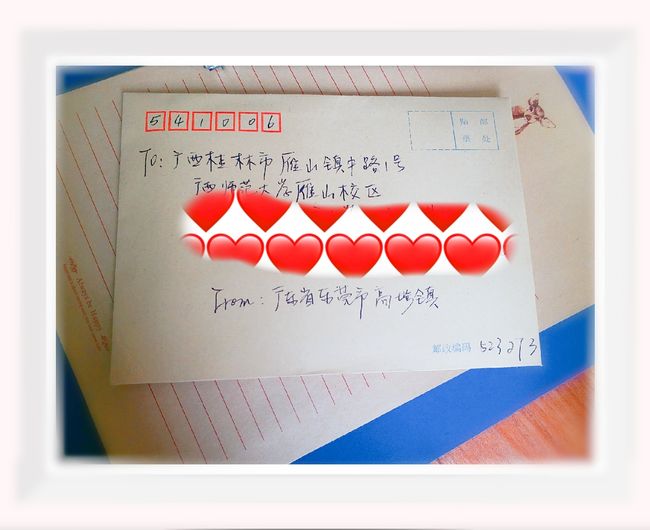 541006
贴 邮
票 处
To: 广西桂林市雁山镇中路1号
广西师范大学雁山校区
From: 广东省东莞市高埗镇
邮政编码 523293
Always be Happy